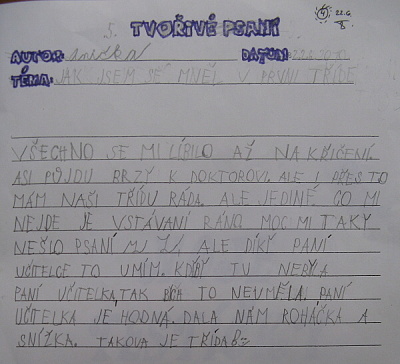 5. TVOŘIVÉ PSANÍ
AUTOR: DATUM:
TÉMA: JAK JSEM SE MNĚL V PRVNÍ TŘÍDĚ
VŠECHNO SE MI LÍBILO AŽ NA KŘIČENÍ.
ASI PŮJDU BRZY K DOKTOROVI. ALE I PŘES TO
MÁM NAŠI TŘÍDU RÁDA. ALE JEDINÉ CO MI
NEJDE JE VSTÁVANÍ RÁNO. MOC MI TAKY
NEŠLO PSANÍ ALE DÍKY PANÍ
UČITELCE TO UMÍM. KDYBY TU NEBYLA
PANÍ UČITELKA, TAK TO NEUMĚLA. PANÍ
UČITELKA JE HODNÁ. DALA NÁM ROHÁČKA A
SNÍŽKA. TAKOVA JE TŘÍDA